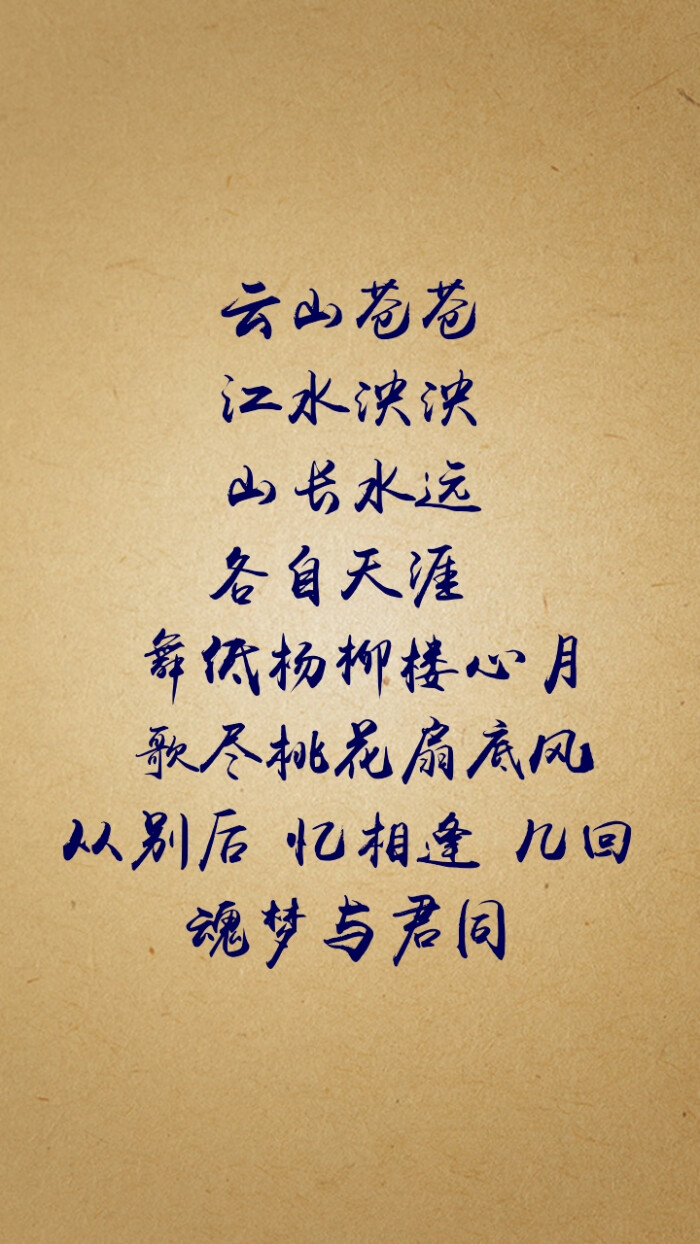 云山苍苍
江水泱泱
山长水远
各自天涯
舞低杨柳楼心月
歌尽桃花扇底风
从别后 忆相逢 几回
魂梦与君同